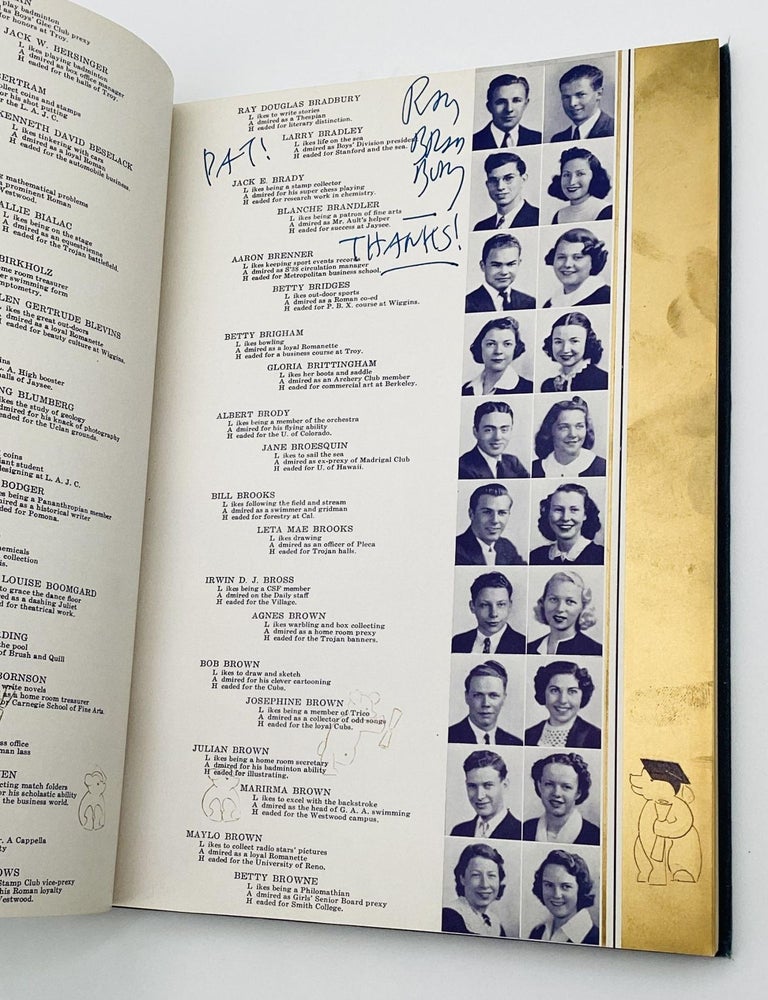 play badminton
as Boys' Glee Club prexy
for honors at Troy.
JACK W. BERSINGER
L ikes playing badminton
A dmired as box office manager
H eaded for the halls of Troy.
BERTRAM
collect coins and stamps
for his shot putting
for the L. A. J. C.
KENNETH DAVID BESELACK
L ikes tinkering with cars
A dmired as a loyal Roman
H eaded for the automobile business.
mathematical problems
prominent Roman
Westwood.
ALLIE BIALAC
L ikes being on the stage
A dmired as an equestrienne
H eaded for the Trojan battlefield.
BIRKHOLZ
home room treasurer
her swimming form
optometry.
GERTRUDE BLEVINS
ikes the great out-doors
dmired as a loyal Romanette
eaded for beauty culture at Wiggins.
L. A. High booster
halls of Jaysee.
BLUMBERG
ikes the study of geology
dmired for his knack of photography
eaded for the Uclan grounds.
coins
student
designing at L. A. J. C.
BODGER
being a Pananthropian member
as a historical writer
for Pomona.
chemicals
collection
LOUISE BOOMGARD
to grace the dance floor
as a dashing Juliet
for theatrical work.
the pool
of Brush and Quill
BORNSON
write novels
as a home room treasurer
for Carnegie School of Fine Arts.
office
lass
collecting match folders
for his scholastic ability
the business world.
A Cappella
Stamp Club vice-prexy
his Roman loyalty
Westwood.
RAY DOUGLAS BRADBURY
L ikes to write stories
A dmired as a Thespian
H eaded for literary distinction.
LARRY BRADLEY
L ikes life on the sea
A dmired as Boys' Division president
H eaded for Stanford and the sea.
PAT!
Ray
Brad
Bury
THANKS!
JACK E. BRADY
L ikes being a stamp collector
A dmired for his super chess playing
H eaded for research work in chemistry.
BLANCHE BRANDLER
L ikes being a patron of fine arts
A dmired as Mr. Ault's helper
H eaded for success at Jaysee.
AARON BRENNER
L ikes keeping sport events records
A dmired as S'38 circulation manager
H eaded for Metropolitan business school.
BETTY BRIDGES
L ikes out-door sports
A dmired as a Roman co-ed
H eaded for P. B. X. course at Wiggins.
BETTY BRIGHAM
L ikes bowling
A dmired as a loyal Romanette
H eaded for a business course at Troy.
GLORIA BRITTINGHAM
L ikes her boots and saddle
A dmired as an Archery Club member
H eaded for commercial art at Berkeley.
ALBERT BRODY
L ikes being a member of the orchestra
A dmired for his flying ability
H eaded for the U. of Colorado.
JANE BROESQUIN
L ikes to sail the sea
A dmired as ex-prexy of Madrigal Club
H eaded for U. of Hawaii.
BILL BROOKS
L ikes following the field and stream
A dmired as a swimmer and gridman
H eaded for forestry at Cal.
LETA MAE BROOKS
L ikes drawing
A dmired as an officer of Pleca
H eaded for Trojan halls.
IRWIN D. J. BROSS
L ikes being a CSF member
A dmired on the Daily staff
H eaded for the Village.
AGNES BROWN
L ikes warbling and box collecting
A dmired as a home room prexy
H eaded for the Trojan banners.
BOB BROWN
L ikes to draw and sketch
A dmired for his clever cartooning
H eaded for the Cubs.
JOSEPHINE BROWN
L ikes being a member of Trico
A dmired as a collector of odd songs
H eaded for the loyal Cubs.
JULIAN BROWN
L ikes being a home room secretary
A dmired for his badminton ability
H eaded for illustrating.
MARIRMA BROWN
L ikes to excel with the backstroke
A dmired as the head of G. A. A. swimming
H eaded for the Westwood campus.
MAYLO BROWN
L ikes to collect radio stars' pictures
A dmired as a loyal Romanette
H eaded for the University of Reno.
BETTY BROWNE
L ikes being a Philomathian
A dmired as Girls' Senior Board prexy
H eaded for Smith College.